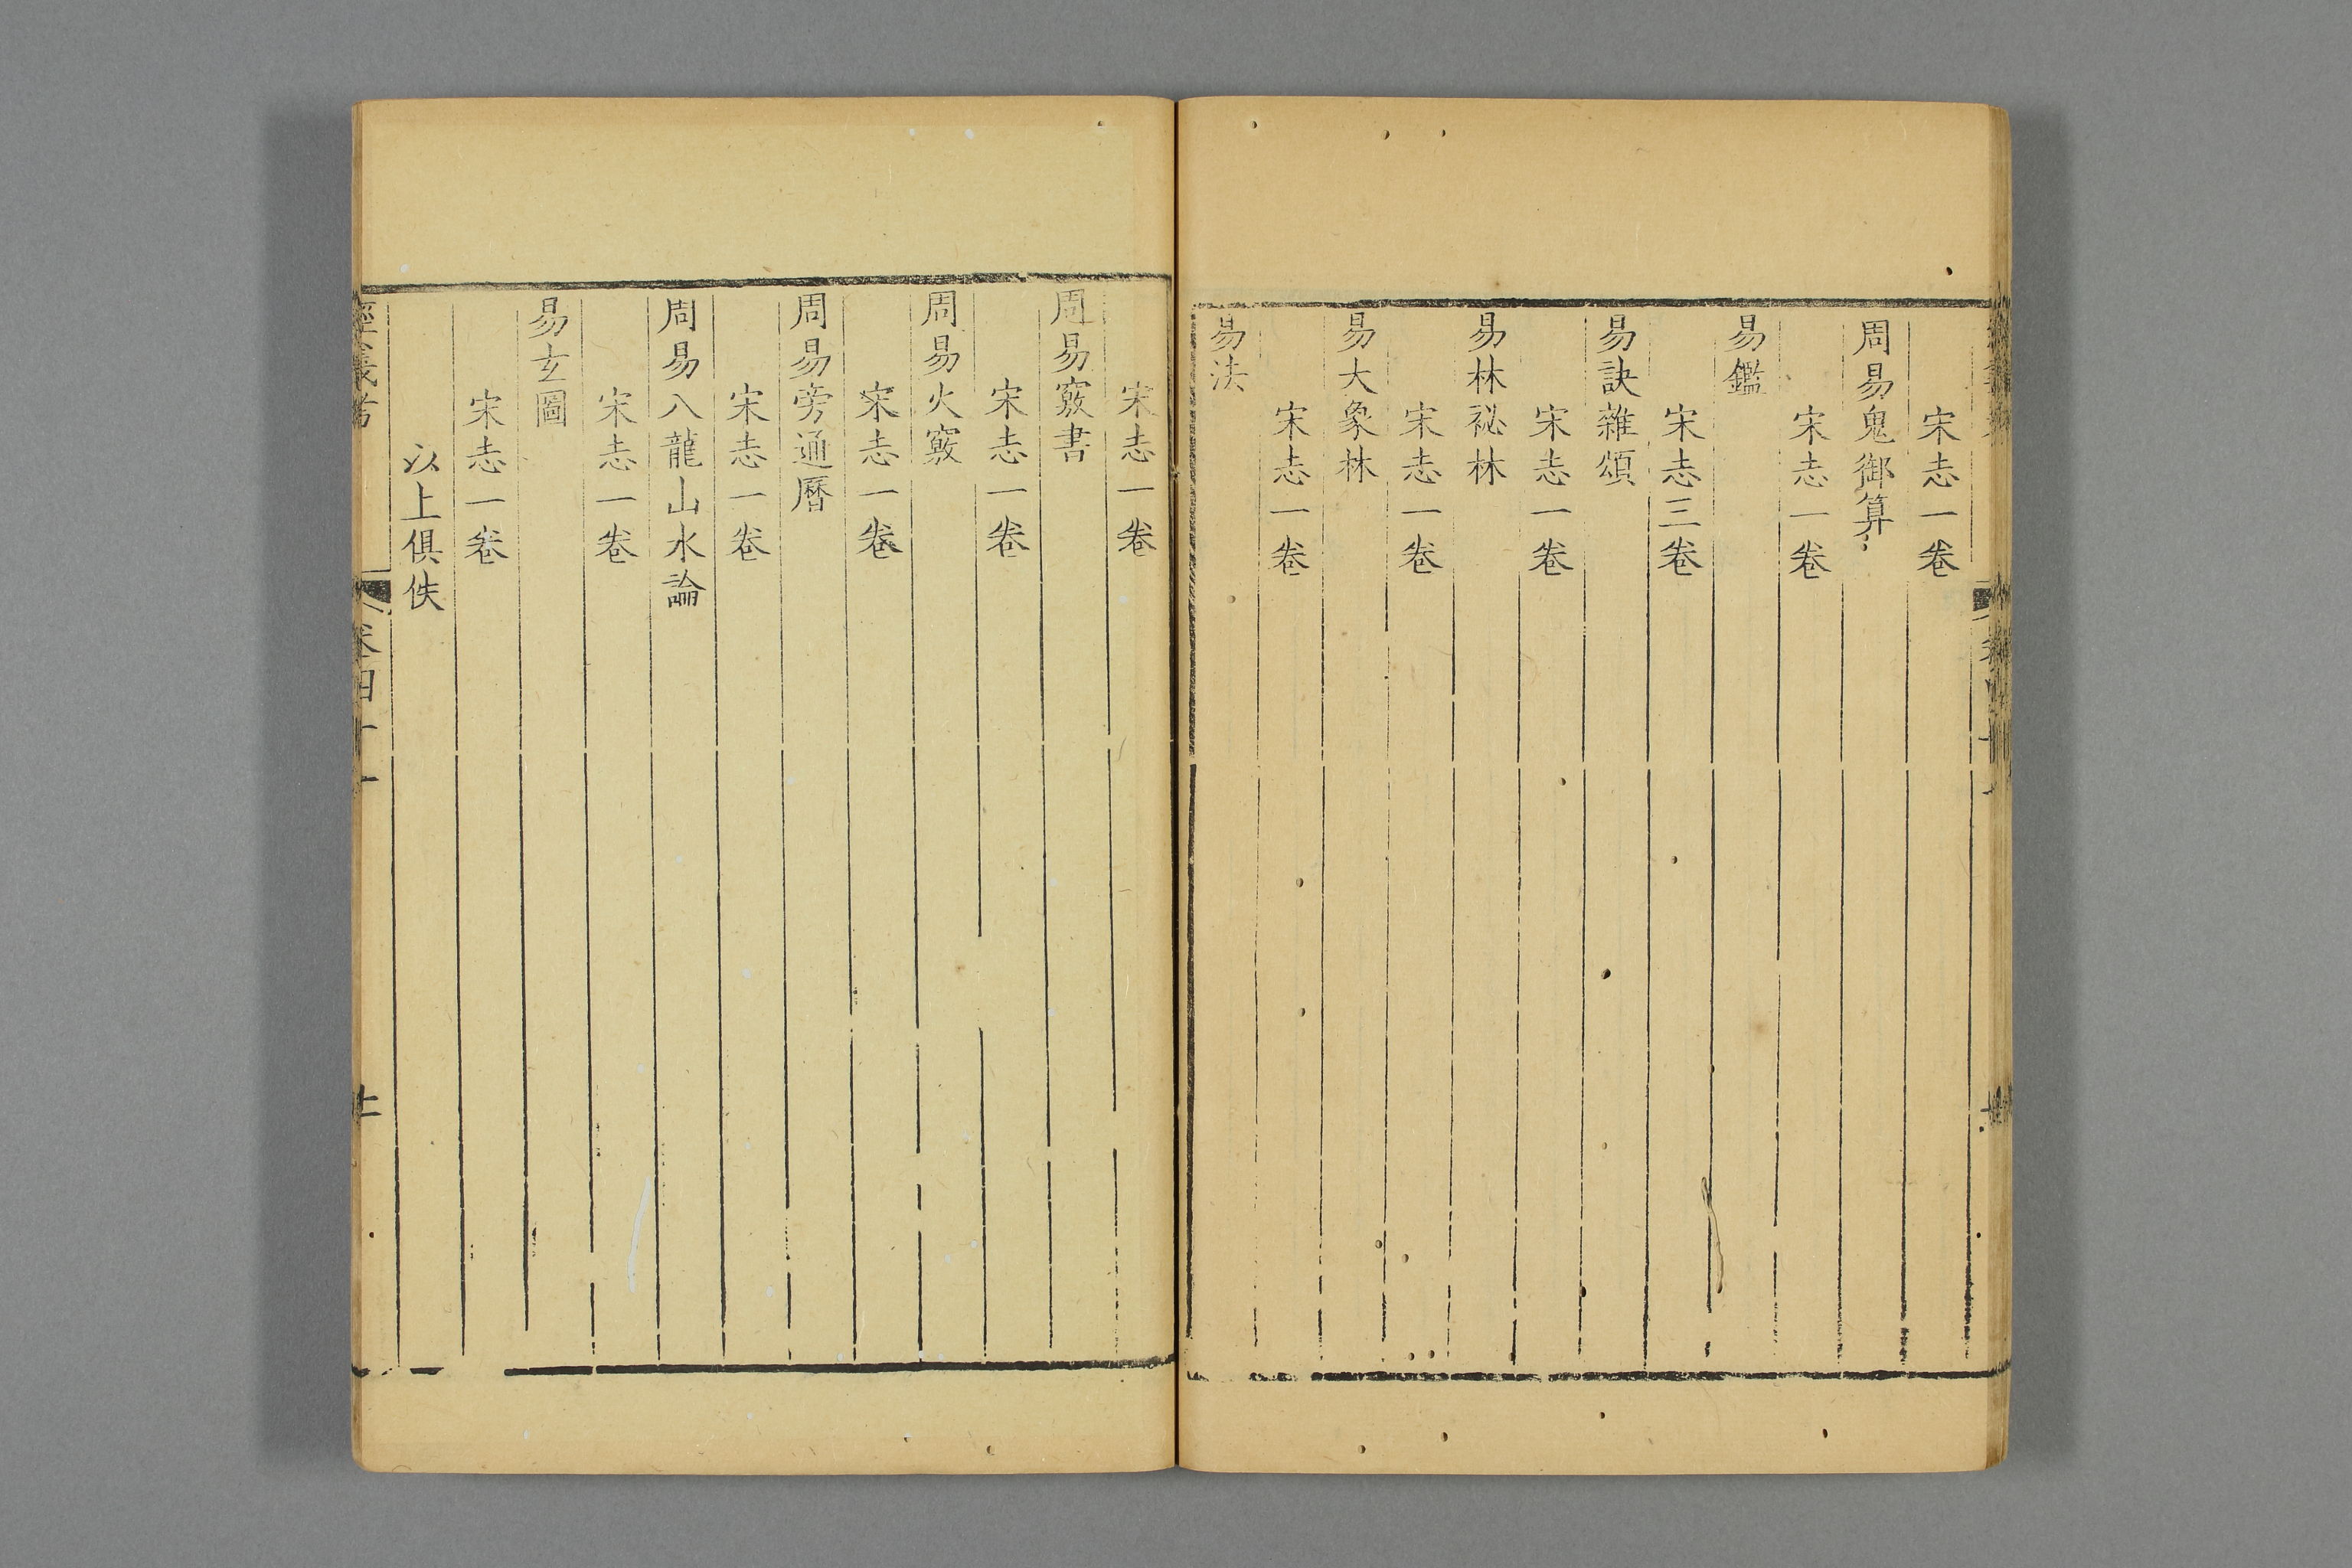 宋志一卷
周易鬼御算
宋志一卷
易鑑
宋志三卷
易訣雜頌
宋志一卷
易林祕林
宋志一卷
易大象林
宋志一卷
易法
宋志一卷
周易竅書
宋志一卷
周易火竅
宋志一卷
周易旁通曆
宋志一卷
周易八龍山水論
宋志一卷
易玄圖
宋志一卷
以上俱佚
經義考 卷四十一